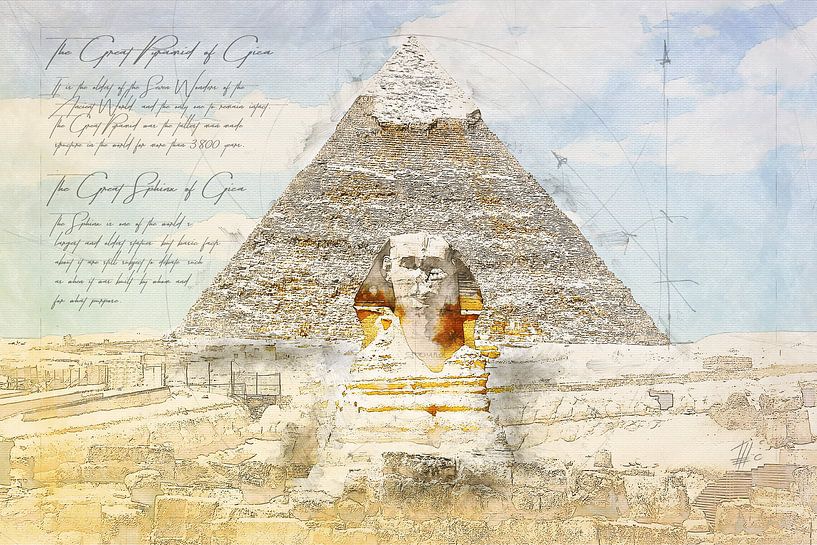 The Great Pyramid of Giza
It is the oldest of the Seven Wonders of the
Ancient World, and the only one to remain intact.
The Great Pyramid was the tallest man made
structure in the world for more than 3800 years.
The Great Sphinx of Giza
The Sphinx is one of the world s
largest and oldest statues but basic facts
about it are still subject to debate such
as when it was built by whom and
for what purpose.